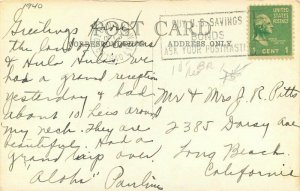 1940
POST CARD
CORRESPONDENCE
ADDRESS ONLY
BUY U.S. SAVINGS
BONDS
ASK YOUR POSTMASTER
1 CENT 1
Greetings from
the land of
& Hula Hulas. We
had a grand reception
yesterday & had
about 10 leis around
my neck. They are
beautiful. Had a
grand trip over
"Aloha" Pauline
Mr & Mrs J. R. Pitts
2385 Daisy Ave
Long Beach
California